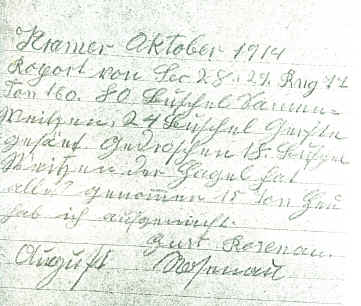 Kramer Oktober 1914
Roport von Sec 28. 29. Rng 77
Ton 160. 80 Buschel Samen=
Weitzen. 24 Buschel Gerste
gesäet Gedroschen 18. Buschel
Weitzen der Hagel hat
alles genomen 15 Ton Heu
hab ich aufgemacht.
Gust Rosenau.
August Rosenau